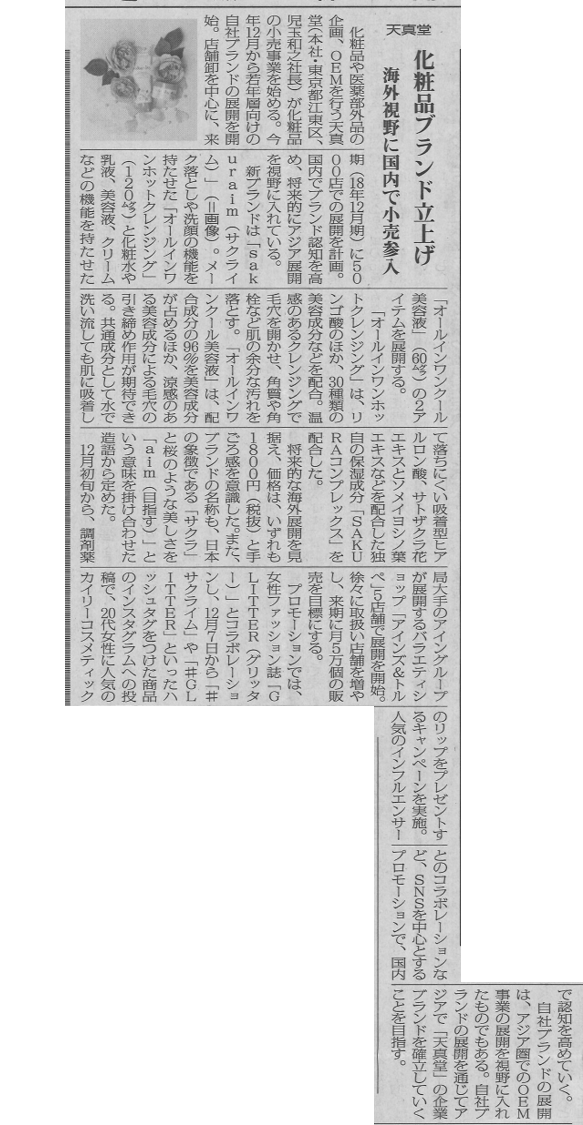 天真堂
化粧品ブランド立上げ
海外視野に国内で小売参入
化粧品や医薬部外品の
企画、OEMを行う天真
堂(本社・東京都江東区、
児玉和之社長)が化粧品
の小売事業を始める。今
年12月から若年層向けの
自社ブランドの展開を開
始。店舗卸を中心に、来
期(18年12月期)に50
00店での展開を計画。
国内でブランド認知を高
め、将来的にアジア展開
を視野に入れている。
新ブランドは「sak
uraim(サクライ
ム)」(=画像)。メー
ク落としや洗顔の機能を
持たせた「オールインワ
ンホットクレンジング」
(120㌘)と化粧水や
乳液、美容液、クリーム
などの機能を持たせた
「オールインワンクール
美容液」(60㌘)の2ア
イテムを展開する。
「オールインワンホッ
トクレンジング」は、リ
ンゴ酸のほか、30種類の
美容成分などを配合。温
感のあるクレンジングで
毛穴を開かせ、角質や角
栓など肌の余分な汚れを
落とす。「オールインワ
ンクール美容液」は、配
合成分の96%を美容成分
が占めるほか、涼感のあ
る美容成分による毛穴の
引き締め作用が期待でき
る。共通成分として水で
洗い流しても肌に吸着し
て落ちにくい吸着型ヒア
ルロン酸、サトザクラ花
エキスとソメイヨシノ葉
エキスなどを配合した独
自の保湿成分「SAKU
RAコンプレックス」を
配合した。
将来的な海外展開を見
据え、価格は、いずれも
1800円(税抜)と手
ごろ感を意識した。また、
ブランドの名称も、日本
の象徴である「サクラ」
と桜のような美しさを
「aim(目指す)」と
いう意味を掛け合わせた
造語から定めた。
12月初旬から、調剤薬
局大手のアイングループ
が展開するバラエティシ
ョップ「アインズ&トル
ペ」5店舗で展開を開始。
徐々に取扱い店舗を増や
し、来期に月5万個の販
売を目標にする。
プロモーションでは、
女性ファッション誌「G
LITTER(グリッタ
ー)」とコラボレーショ
ンし、12月7日から「#
サクライム」や「#GL
ITTER」といったハ
ッシュタグをつけた商品
のインスタグラムへの投
稿で、20代女性に人気の
カイリーコスメティック
のリップをプレゼントす
るキャンペーンを実施。
人気のインフルエンサー
とのコラボレーションな
ど、SNSを中心とする
プロモーションで、国内
で認知を高めていく。
自社ブランドの展開
は、アジア圏でのOEM
事業の展開を視野に入れ
たものでもある。自社ブ
ランドの展開を通じてア
ジアで「天真堂」の企業
ブランドを確立していく
ことを目指す。